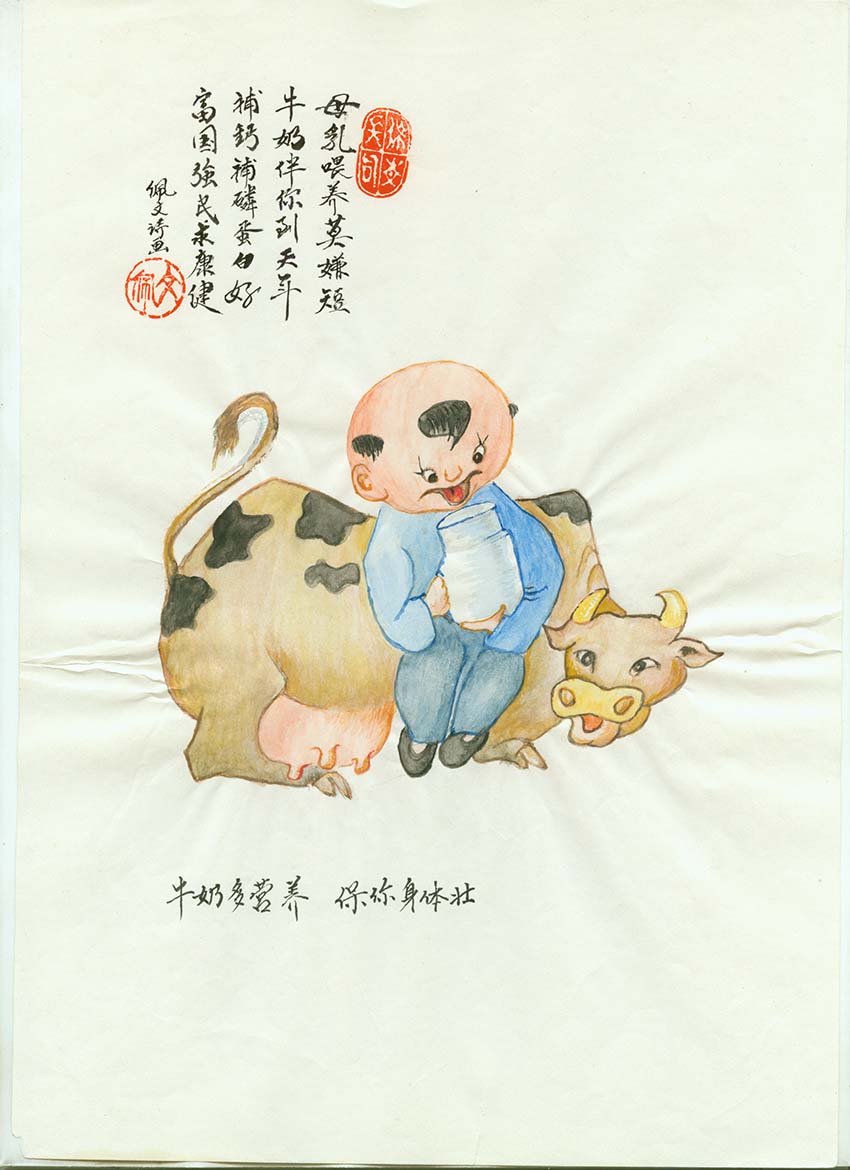 母乳喂养莫嫌短
牛奶伴你到天年
補鈣補磷蛋白好
富国強民求康健
佩文诗画
佩文
牛奶多营养 保你身体壮